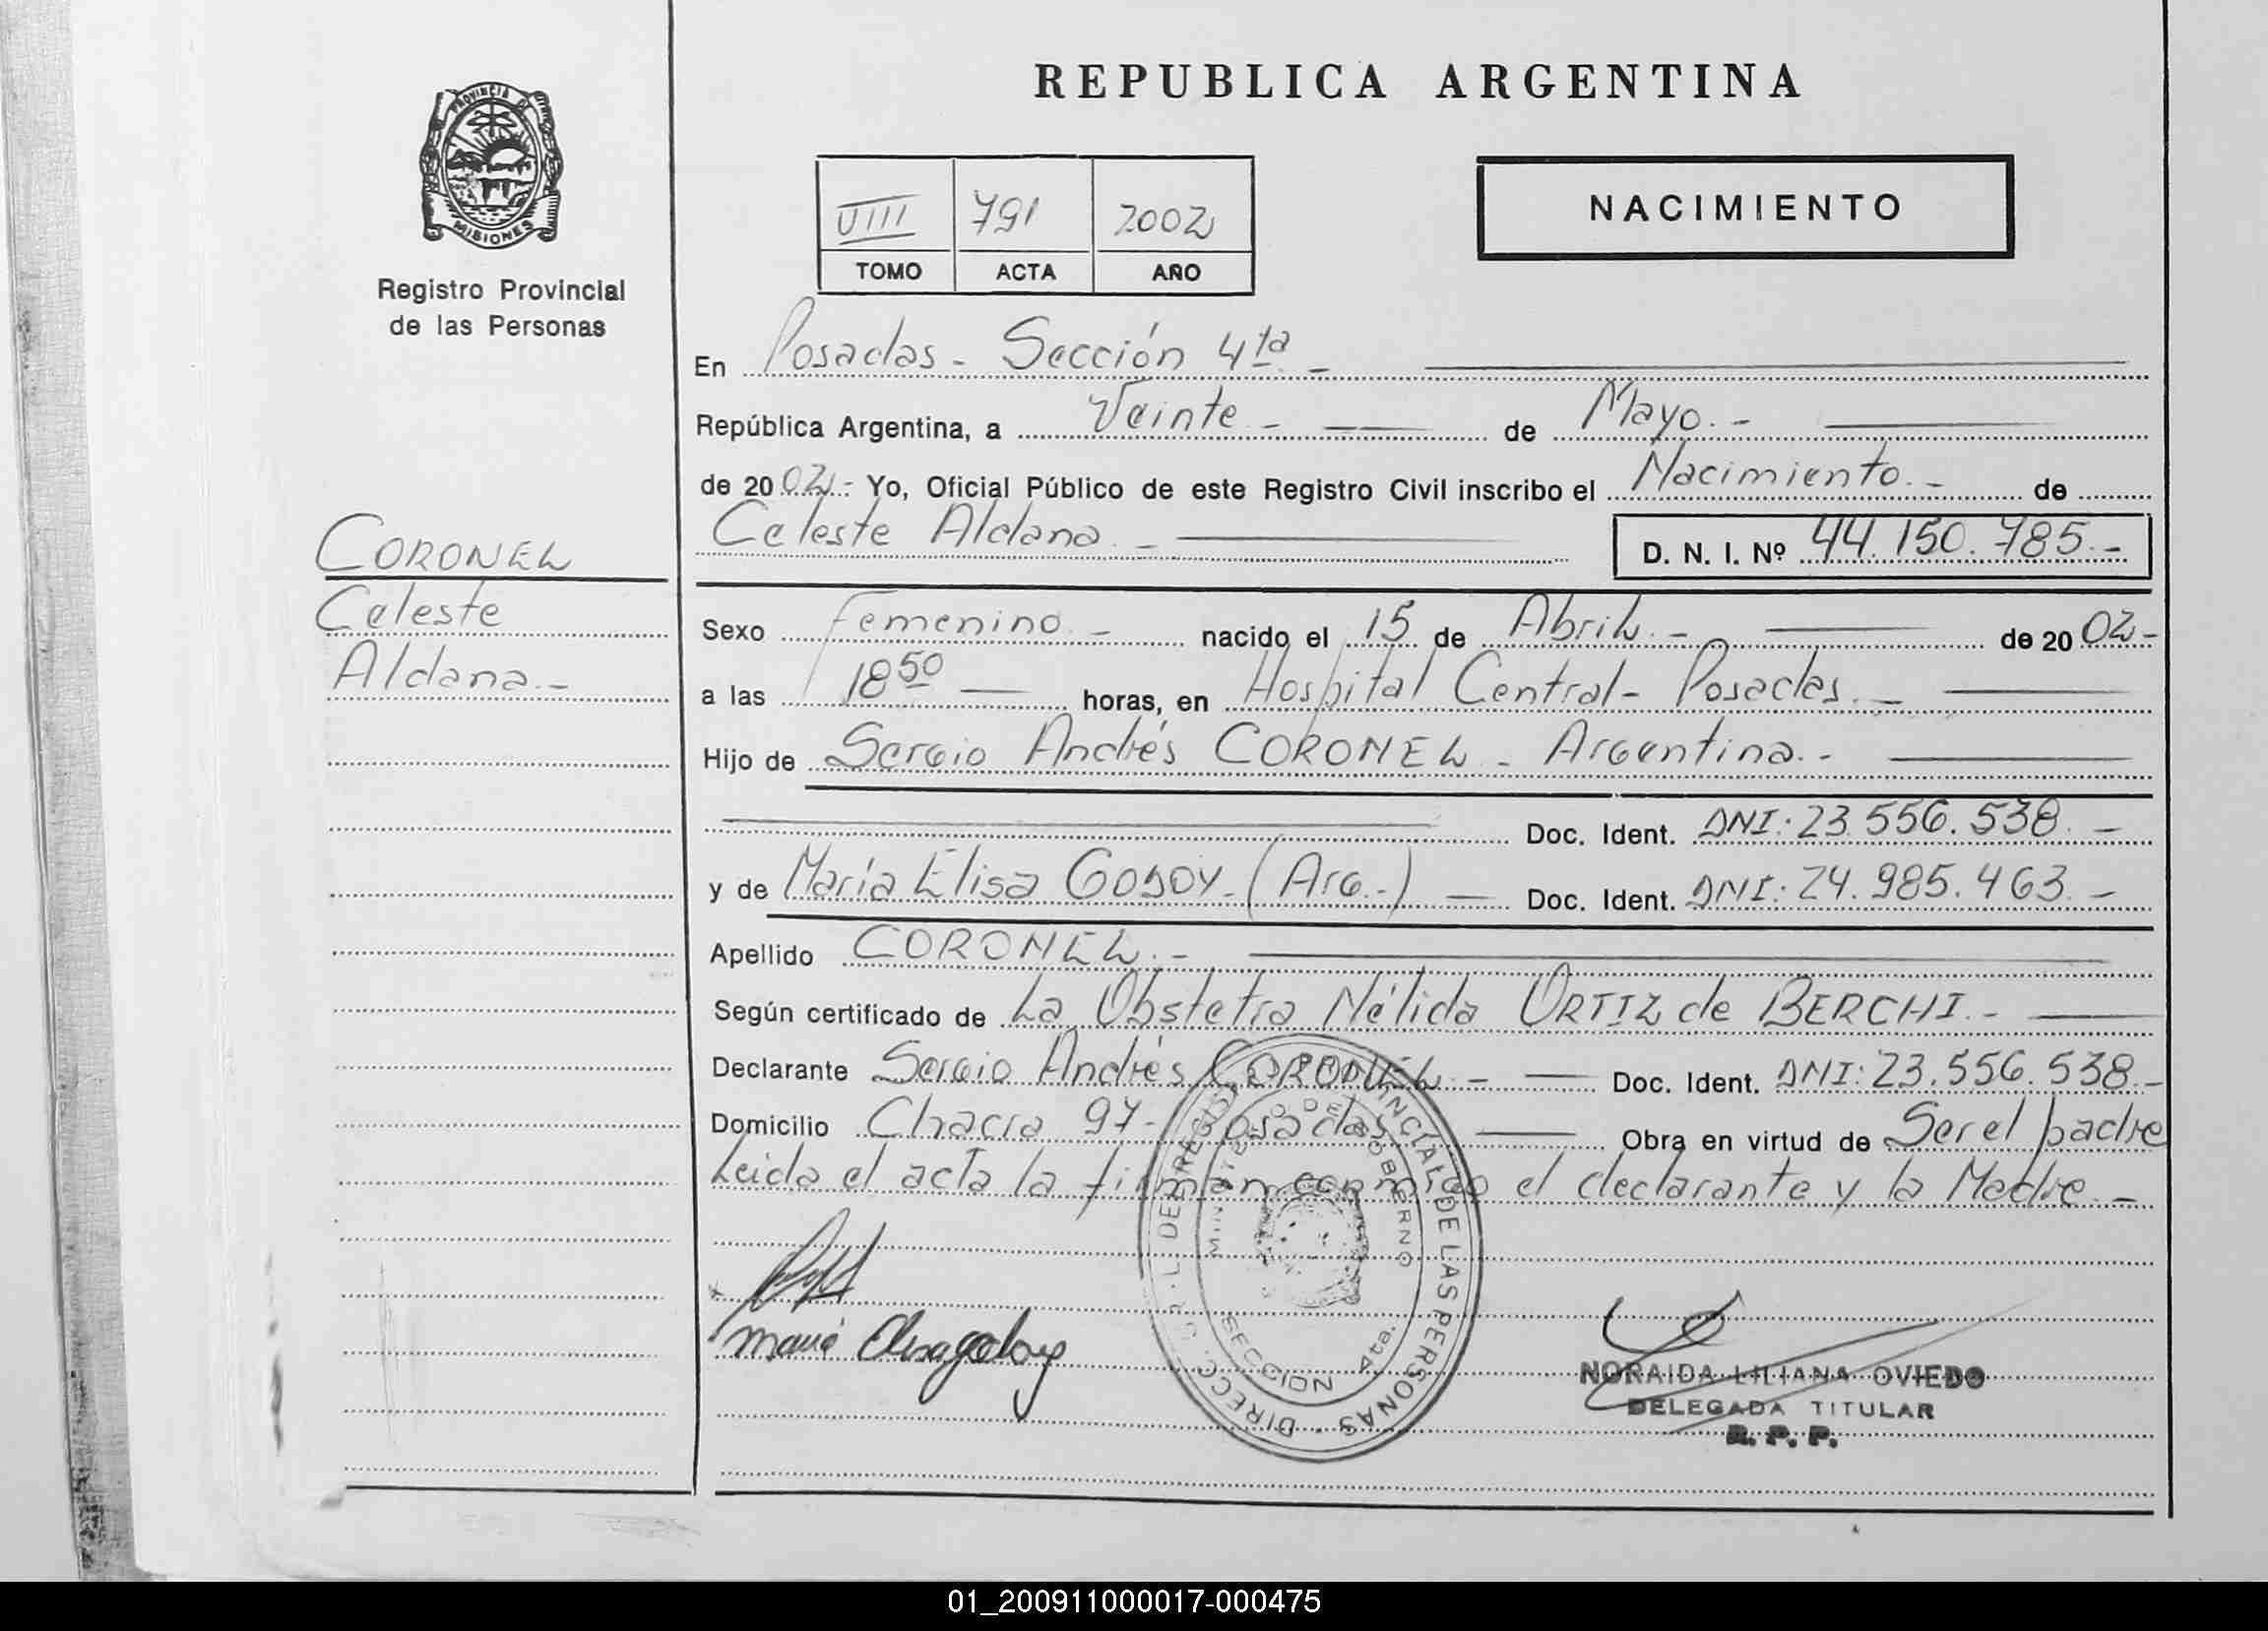 REPUBLICA ARGENTINA
PROVINCIA DE
MISIONES
Registro Provincial
de las Personas
VIII 791 2002
TOMO ACTA AÑO
NACIMIENTO
En Posadas - Sección 4ta -
República Argentina, a Veinte - de Mayo. -
de 2002.- Yo, Oficial Público de este Registro Civil inscribo el Nacimiento. - de
Celeste Aldana. - D. N. I. Nº 44.150.785.-
CORONEL
Celeste
Aldana.-
Sexo Femenino. - nacido el 15 de Abril. - de 2002-
a las 18 50 horas, en Hospital Central - Posadas. -
Hijo de Sergio Andrés CORONEL - Argentina. -
Doc. Ident. DNI: 23.556.538. -
y de María Elisa GODOY - (Arg.-) Doc. Ident. DNI: 24.985.463. -
Apellido CORONEL. -
Según certificado de La Obstetra Nélida ORTIZ de BERCHI. -
Declarante Sergio Andrés CORONEL - Doc. Ident. DNI: 23.556.538.-
Domicilio Chacra 97 - Posadas Obra en virtud de Ser el padre
Leida el acta la firman conmigo el declarante y la Madre. -
DIRECC. G. R. L. DE REGISTRO PROVINCIAL DE LAS PERSONAS
MINISTERIO DE GOBIERNO
SECCION 4ta.
María Elisa godoy
NORAIDA LILIANA OVIEDO
DELEGADA TITULAR
R. P. P.
01_200911000017-000475